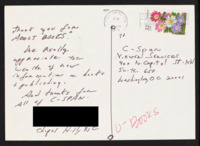 Thank you for
"About Books"
We Really
appreciate your
wealth of new
information on books
& publishing.
And thanks for
All of C-SPAN
Chapel Hill, NC
C-Span
Viewer Services
400 N. Capitol St. NW
Suite 650
Washington DC 20001
Books